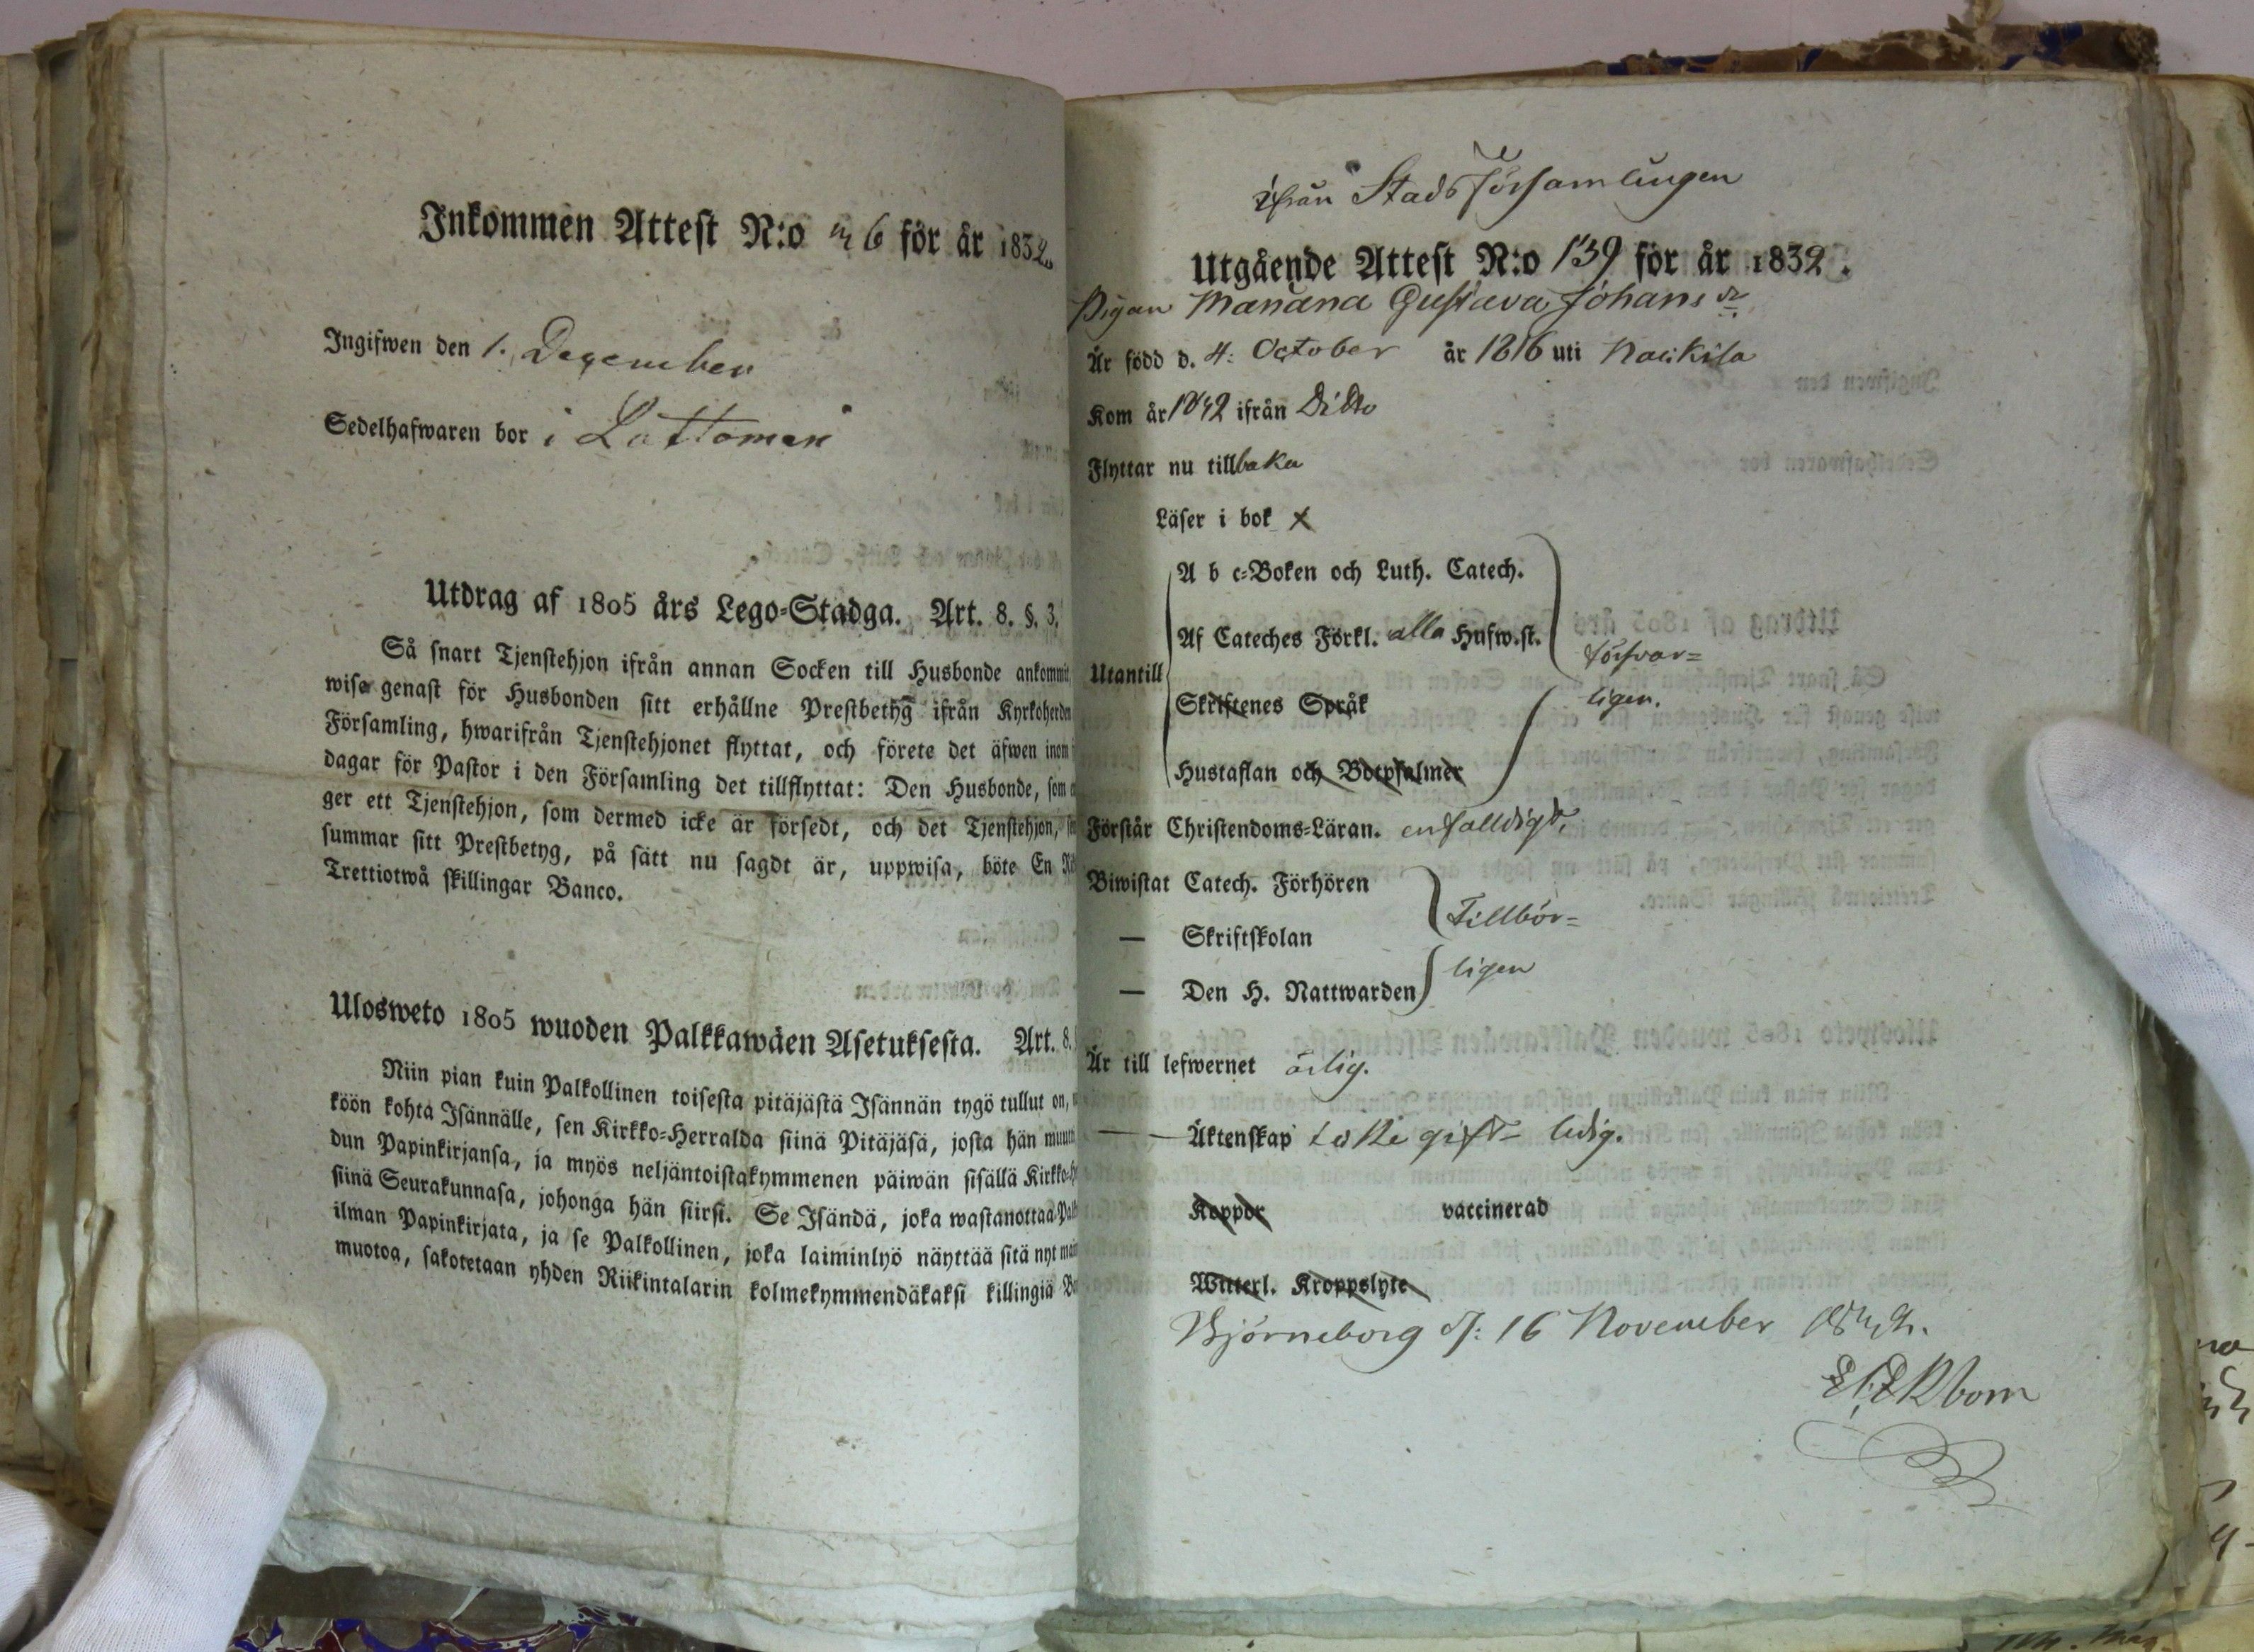 Inkommen Attest N:o 26 för år 1832.
Ingifwen den 1. December
Sedelhafwaren bor i Lattomeri
Utdrag af 1805 års Lego-Stadga. Art. 8. §. 3.
Så snart Tjenstehjon ifrån annan Socken till Husbonde ankommit,
wise genast för Husbonden sitt erhållne Prestbetyg ifrån Kyrkoherden
Församling, hwarifrån Tjenstehjonet flyttat, och förete det äfwen inom
dagar för Pastor i den Församling det tillflyttat: Den Husbonde, som
ger ett Tjenstehjon, som dermed icke är försedt, och det Tjenstehjon,
summar sitt Prestbetyg, på sätt nu sagdt är, uppwisa, böte En
Trettiotwå skillingar Banco.
Ulosweto 1805 wuoden Palkkawäen Asetuksesta. Art. 8.
Niin pian kuin Palkollinen toisesta pitäjästä Isännän tygö tullut on,
köön kohta Isännälle, sen Kirkko-Herralda siinä Pitäjäsä, josta hän muut
dun Papinkirjansa, ja myös neljäntoistakymmenen päiwän sisällä Kirkko-
siinä Seurakunnasa, johonga hän siirsi. Se Isändä, joka wastanottaa
ilman Papinkirjata, ja se Palkollinen, joka laiminlyö näyttää sitä nyt
muotoa, sakotetaan yhden Riikintalarin kolmekymmendäkaksi killingiä
ifrån Stads Församlingen
Utgående Attest N:o 139 för år 1832.
Pigan Mariana Gustava Johansdr
Är född d. 4: October år 1816 uti Naukila
Kom år 1832 ifrån Ditto
Flyttar nu tillbaka
Läser i bok x
A b c-Boken och Luth. Catech.
Af Cateches Förkl. alla Hufw.st.
försvar=
Utantill
Skriftenes Språk
ligen.
Hustaflan och Botpsalmer
Förstår Christendoms-Läran. enfalldigt,
Biwistat Catech. Förhören
Tillbör=
— Skriftskolan
ligen
— Den H. Nattwarden
Är till lefwernet ärlig.
— Äktenskap icke gift- ledig.
Koppor vaccinerad
Witterl. Kroppslyte
Björneborg d: 16 November 1832.
Ekbom